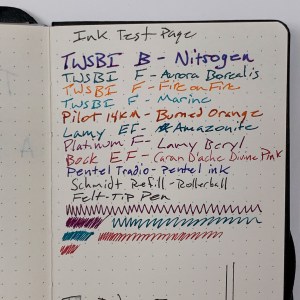 Ink Test Page
TWSBI B - Nitrogen
TWSBI F - Aurora Borealis
TWSBI F - Fire on Fire
TWSBI F - Marine
Pilot 14K M - Burned Orange
Lamy EF - Amazonite
Platinum F - Lamy Beryl
Bock EF - Caran D'ache Divine Pink
Pentel Tradio - Pentel ink
Schmidt Refill - Rollerball
Felt-Tip Pen